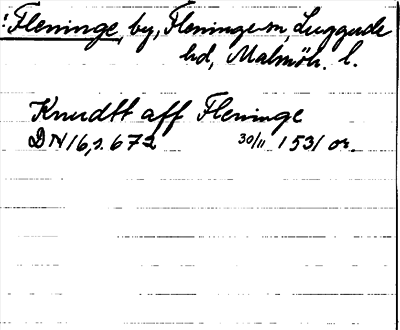 Fleninge, by, Fleninge sn, Luggude
hd, Malmöh. l.
Knudtt aff Fleninge
DN 16, s. 672 30/11 1531 or.